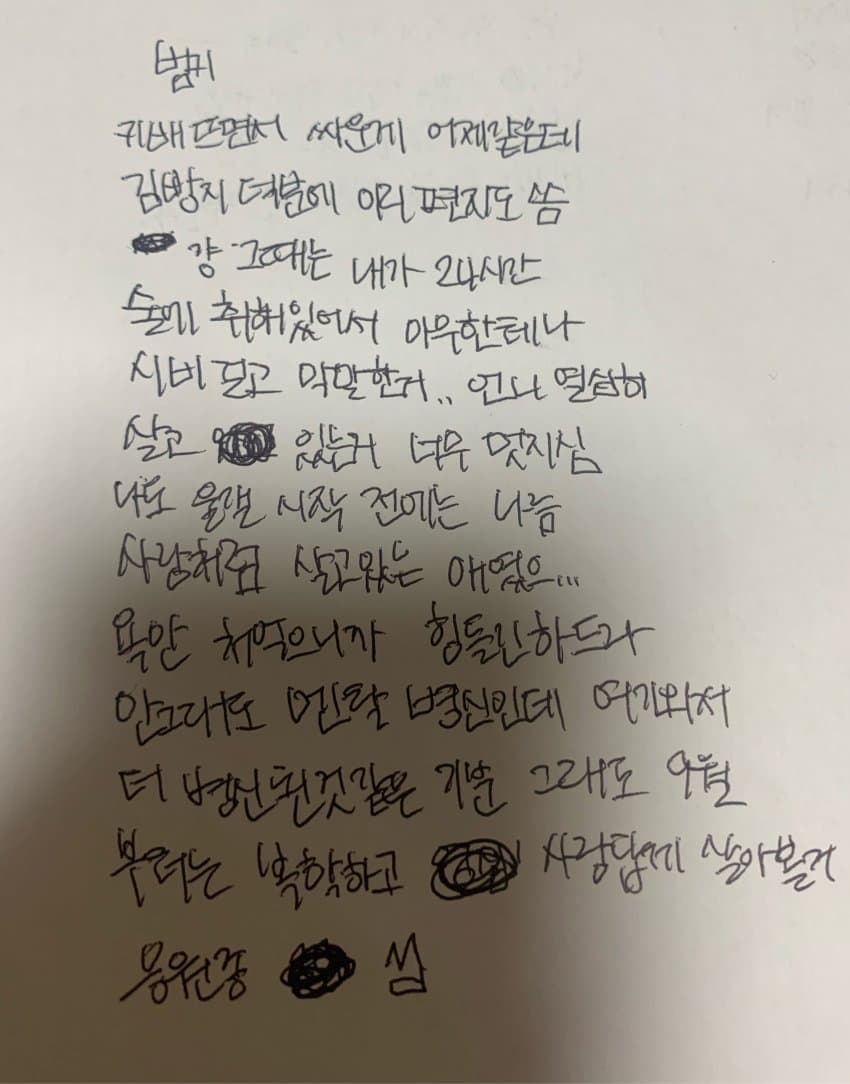 범귀
귀배 뜨면서 싸운게 어제같은데
김방지 덕분에 이런 편지도 씀
걍 그때는 내가 24시간
술에 취해있어서 아무한테나
시비 걸고 막말한거.. 언니 열심히
살고 있는거 너무 멋지심
나도 울갤 시작 전에는 나름
사람처럼 살고있는 애였으...
욕만 처먹으니까 힘들긴하드라
안그래도 멘탈 병신인데 여기와서
더 병신된것같은 기분 그래도 9월
부터는 복학하고 사람답게 살아볼거
응원좀 씸